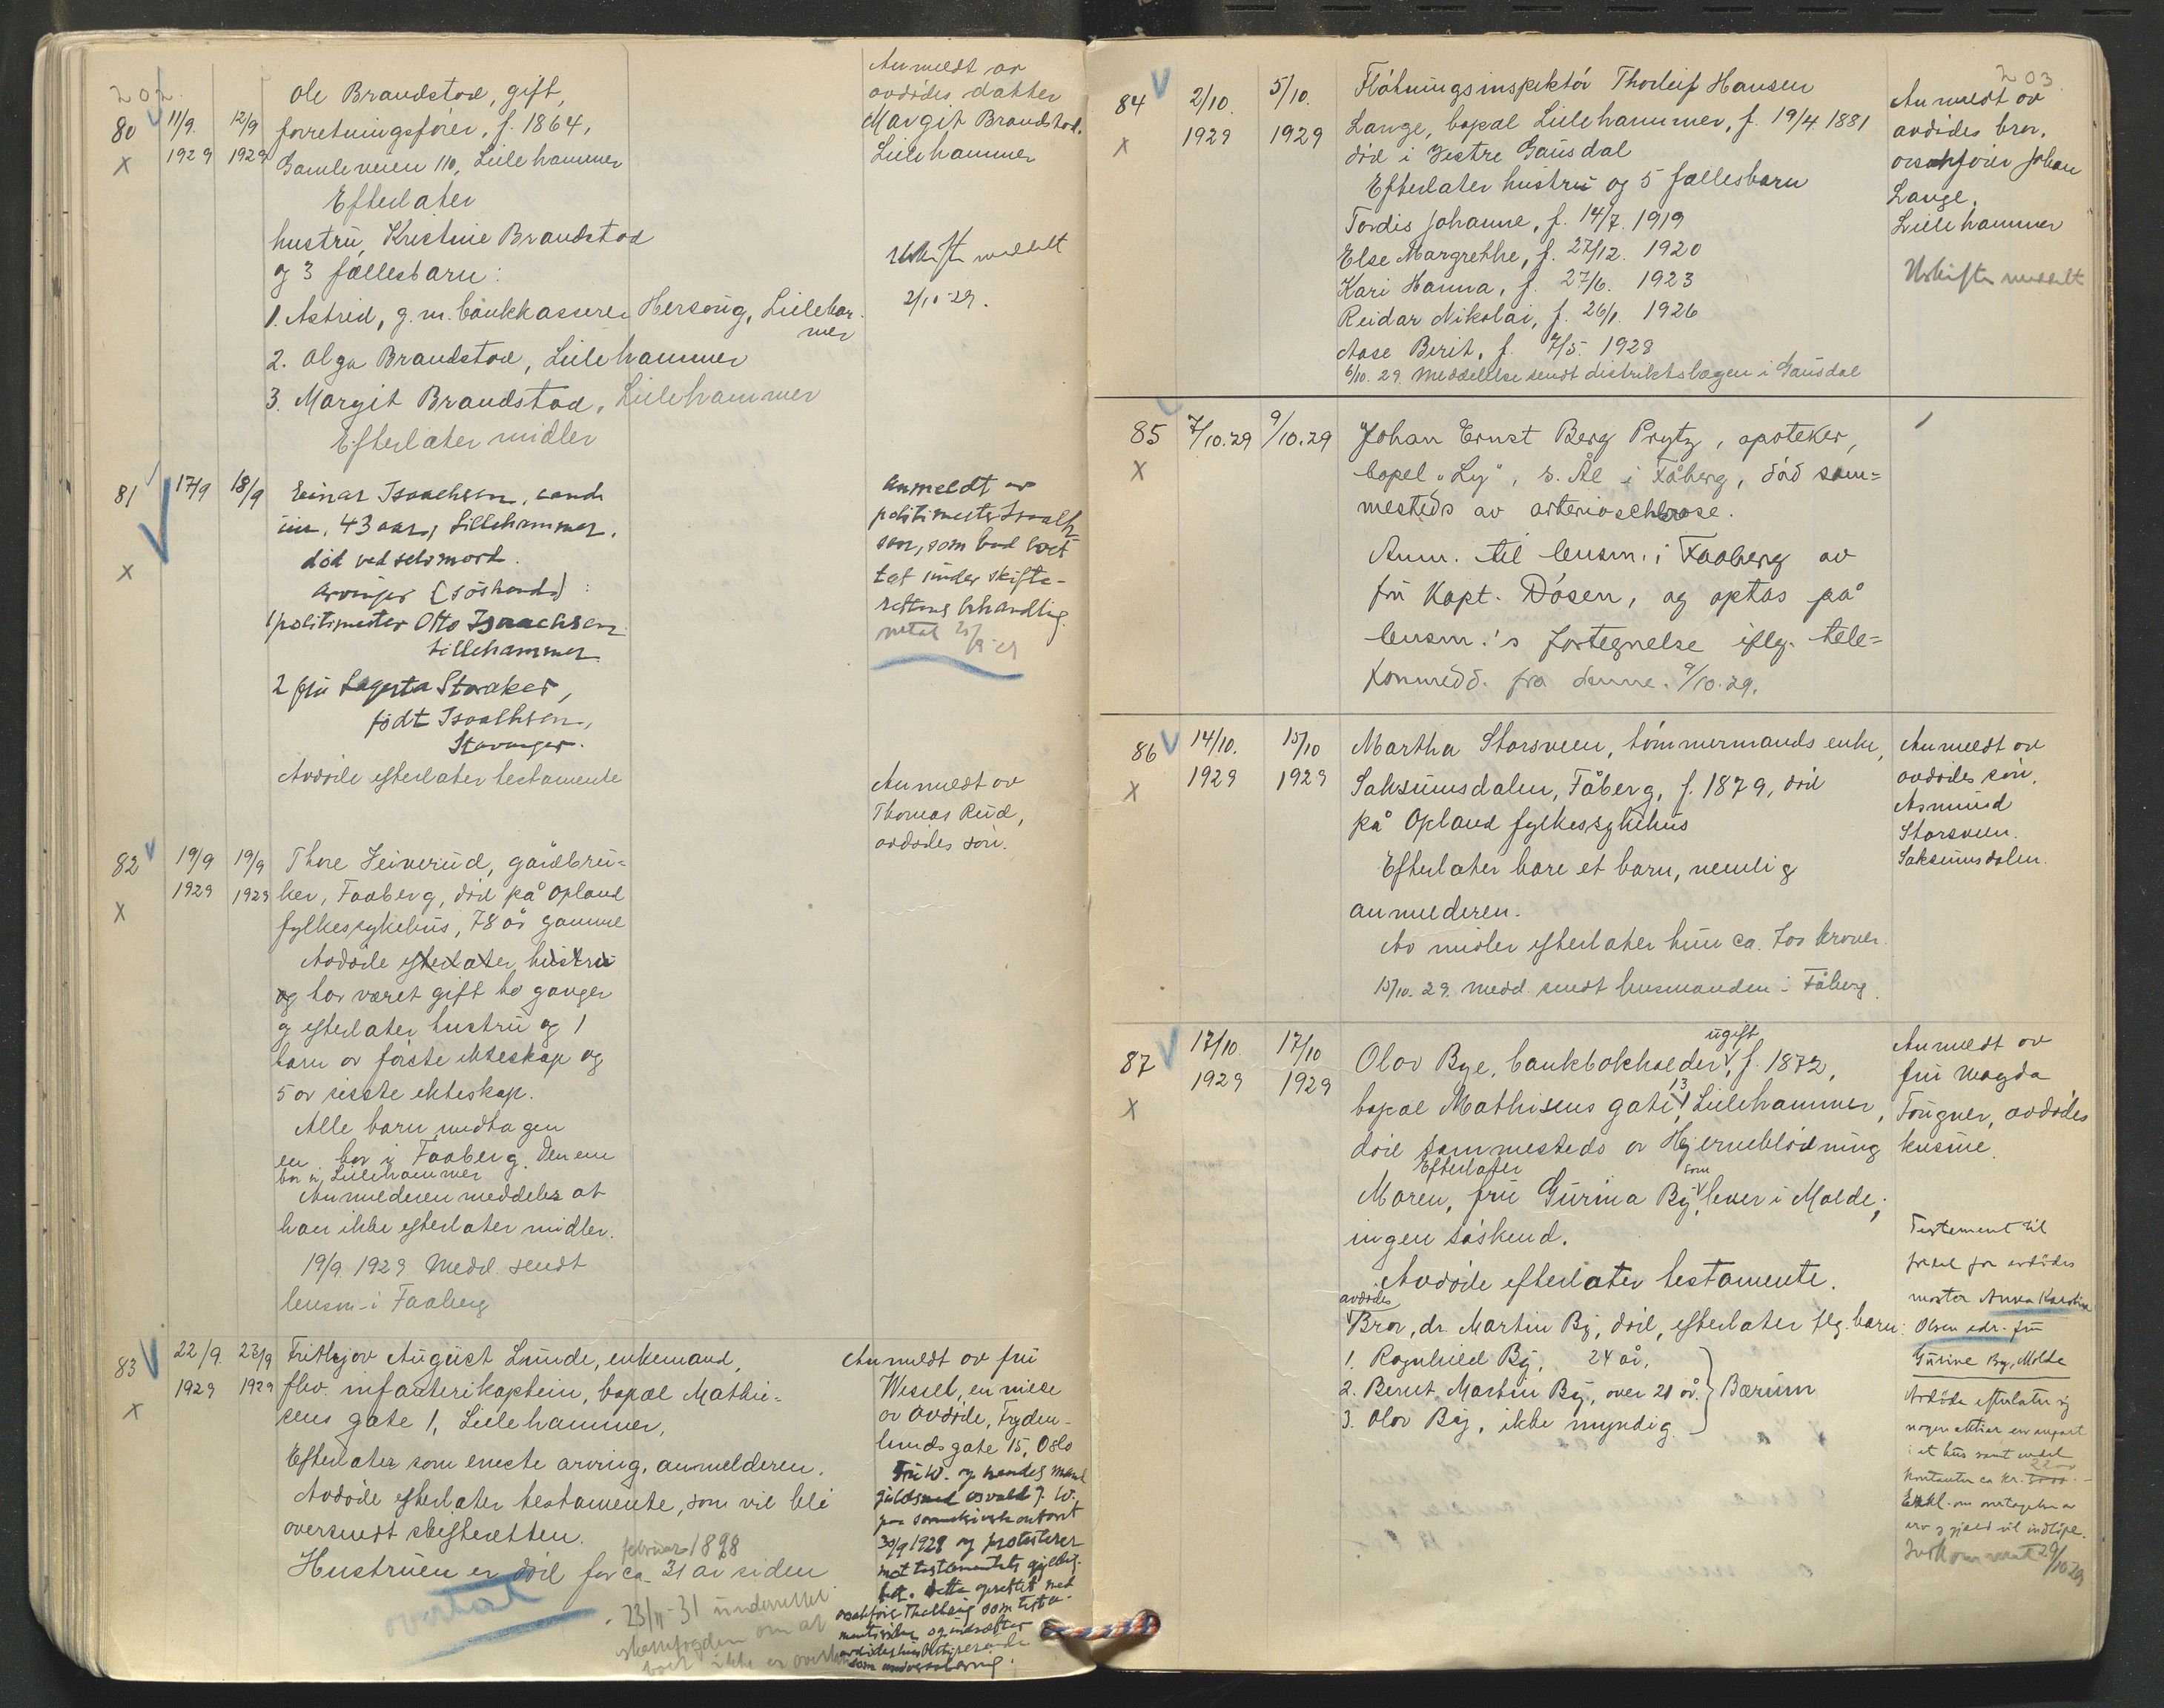 202.
80
11/9
1929
12/9
1929
x
Ole Brandstad, gift,
forretningsfører, f. 1864,
Gamleveien 110, Lillehammer
Efterlater
hustru, Kristine Brandstad
og 3 fællesbarn:
1. Astrid, g. m. bankkasserer Hersoug, Lilleham-
mer
2. Olga Brandstad, Lillehammer
3. Margit Brandstad, Lillehammer
Efterlater midler
Anmeldt av
avdødes datter
Margit Brandstad,
Lillehammer
Uskifte meddelt
2/10-29.
81
17/9
18/9
x
Einar Isaachsen, cand.
jur., 43 aar, Lillehammer.
død ved selvmord.
Arvinger (søskend):
1 politimester Otto Isaachsen
Lillehammer.
2 fru Lagerta Storaker,
født Isaachsen,
Stavanger.
Avdøde efterlater testamente
anmeldt av
politimester Isaach-
sen, som bad boet
tat under skifte-
rettens behandling.
82
19/9
1929
19/9
1929
x
Thore Jeinerud, gårdbru-
ker, Faaberg, død på Opland
fylkessykehus, 78 år gammel
Avdøde efterlater hustru
og har været gift to ganger
og efterlater hustru og 1
barn av første ekteskap og
5 av siste ekteskap.
Alle barn undtagen
en, bor i Faaberg. Den ene
bor i Lillehammer
Anmelderen meddeler at
han ikke efterlater midler.
19/9 1929 Medd. sendt
lensm. i Faaberg
Anmeldt av
Thomas Rud,
avdødes søn.
83
22/9
1929
23/9
1929
x
Frithjov August Lunde, enkemand,
fhv. infanterikaptein, bopæl Mathie-
sens gate 1, Lillehammer,
Efterlater som eneste arving, anmelderen.
Avdøde efterlater testamente, som vil bli
oversendt skifteretten.
februar 1898
Hustruen er død for ca 31 år siden
overtat
23/11-31 underrettet
skattefogden om at
boet ikke er overtat
Anmeldt av fru
Wessel, en niese
av avdøde, Fryden-
lunds gate 15, Oslo
Fru W. og hendes mand
guldsmed Osvald J. W.
paa sorenskriverkontoret
30/9 1929 og protesterer
mot testamentets gyldig-
het. Dette oprettet med
203
84
2/10.
1929
5/10.
1929
x
Fløtningsinspektør Thorleif Hansen
Lange, bopæl Lillehammer, f. 19/4 1881
død i Vestre Gausdal
Efterlater hustru og 5 fællesbarn
Tordis Johanne, f. 14/7. 1919
Else Margrethe, f. 27/12. 1920
Kari Hanna, f. 27/6. 1923
Reidar Nikolai, f. 26/1. 1926
Aase Berit, f. 7/5. 1928
6/10. 29. Meddelelse sendt distriktslægen i Gausdal
Anmeldt av
avdødes bror,
orsakfører Johan
Lange,
Lillehammer
Uskifte meddelt
85
7/10.29
9/10.29
x
Johan Ernst Berg Prytz, apoteker,
bopel "Ly", s. Ål i Fåberg, død sam-
mesteds av arteriosclerose.
Anm. til lensm. i Faaberg av
fru Kapt. Døsen, og optas på
lensm.'s fortegnelse iflg. tele-
fonmedd. fra denne. 9/10.29.
86
14/10.
1929
15/10
1929
x
Martha Storsveen, tømmermands enke,
Saksumsdalen, Fåberg, f. 1879, død
på Opland fylkessykehus
Efterlater bare et barn, nemlig
anmelderen.
Av midler efterlater hun ca. 700 kroner.
15/10. 29. Medd. sendt lensmanden i Fåberg.
Anmeldt av
avdødes søn,
Asmund
Storsveen.
Saksumsdalen.
87
17/10.
1929
17/10
1929
x
ugift
Olav Bye, bankbokholder, f. 1872,
bopæl Mathisens gate 13, Lillehammer,
død sammesteds av Hjerneblødning
Efterlater
Moren, fru Gurina By, som lever i Molde;
ingen søskend.
Avdøde efterlater testamente.
avdødes
Bror, dr. Martin By, død, efterlater flg. barn:
1. Ragnhild By, 24 år.
2. Bernt Martin By, over 21 år. } Bærum
3. Olav By, ikke myndig.
Anmeldt av
fru Magda
Tougner, avdødes
kusine.
Testament til
fordel for avdødes
moster Anna Karoline
Olsen edr. fru
Gurine By, Molde
Avdøde efterlater sig
nogen aktier en anpart
i et hus samt endel
kontanter ca kr. 2200.-
Erkl. om overtagelse av
arv og gjæld vil indløpe.
29/10 29